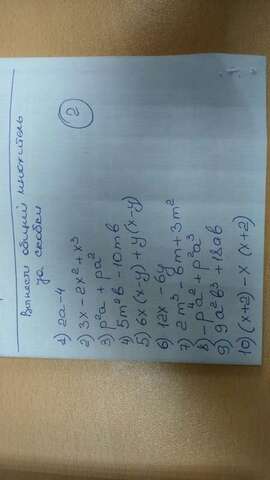 Вынести общий множитель
за скобки
2
1) 2a-4
2) 3x-2x²+x³
3) p²a+pa²
4) 5m²b-10mb
5) 6x(x-y)+y(x-y)
6) 12x-6y
7) 2m³-6m+3m²
8) -p⁴a²+p²a³
9) 9a²b³+18ab
10) (x+2)-x(x+2)